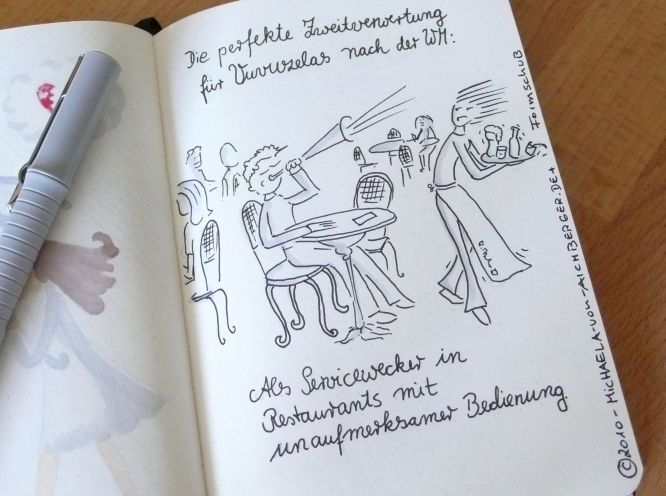 Die perfekte Zweitverwertung
für Vuvuzelas nach der WM:
Als Servicewecker in
Restaurants mit
unaufmerksamer Bedienung.
©2010 - MICHAELA-VON-AICHBERGER.DE +